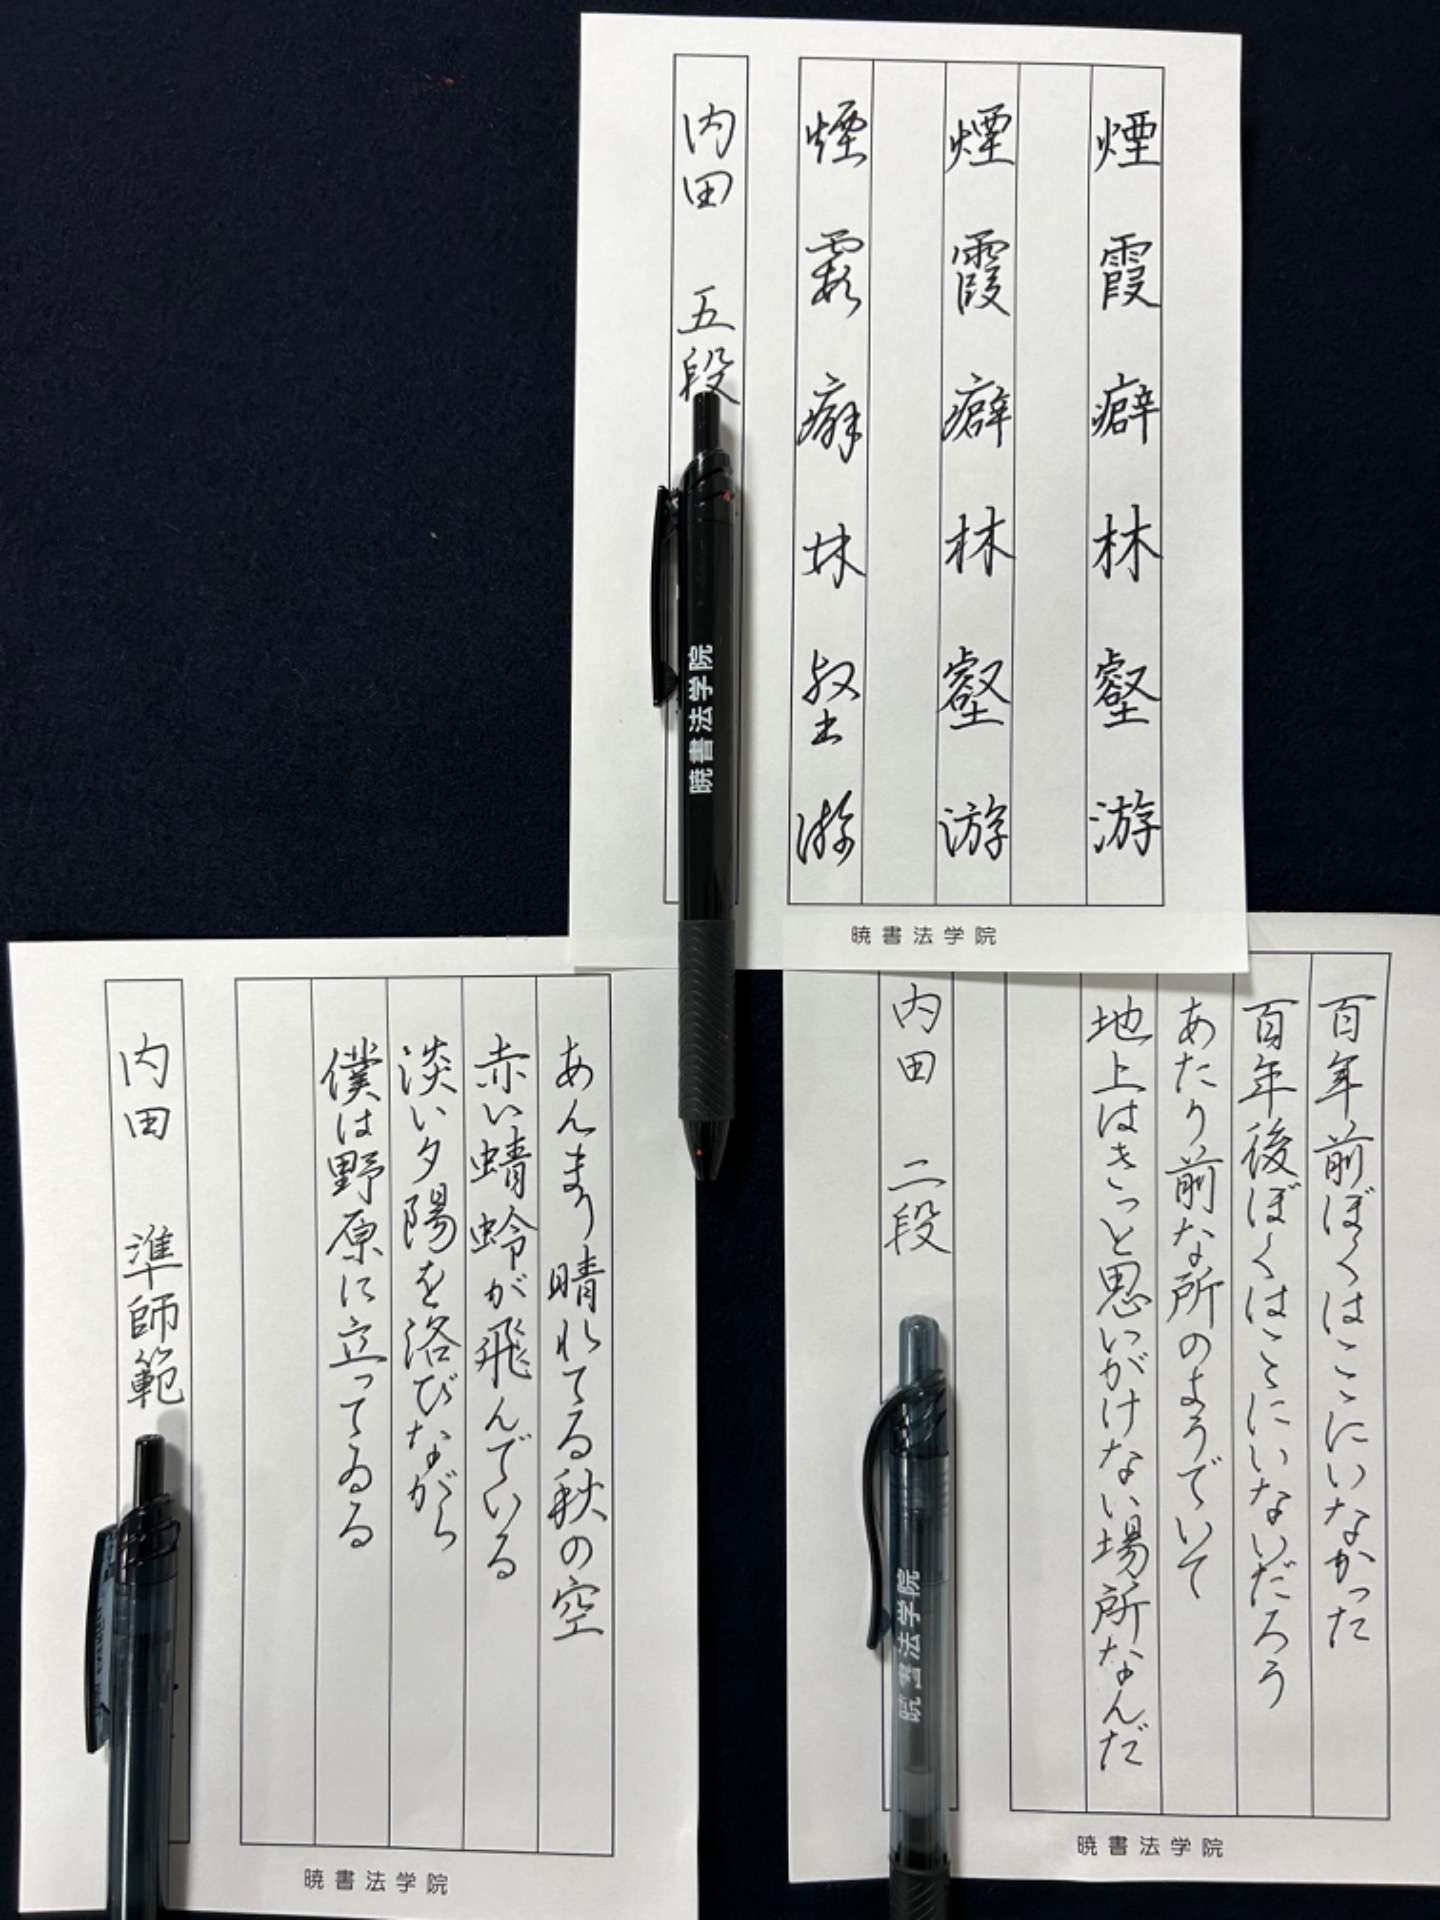 煙霞癖林壑游
煙霞癖林壑游
煙霞癖林壑游
内田 五段
暁書法学院
暁書法学院
百年前ぼくはここにいなかった
百年後ぼくはここにいないだろう
あたり前な所のようでいて
地上はきっと思いがけない場所なんだ
内田 二段
暁書法学院
暁書法学院
あんまり晴れてる秋の空
赤い蜻蛉が飛んでいる
淡い夕陽を浴びながら
僕は野原に立ってゐる
内田 準師範
暁書法学院